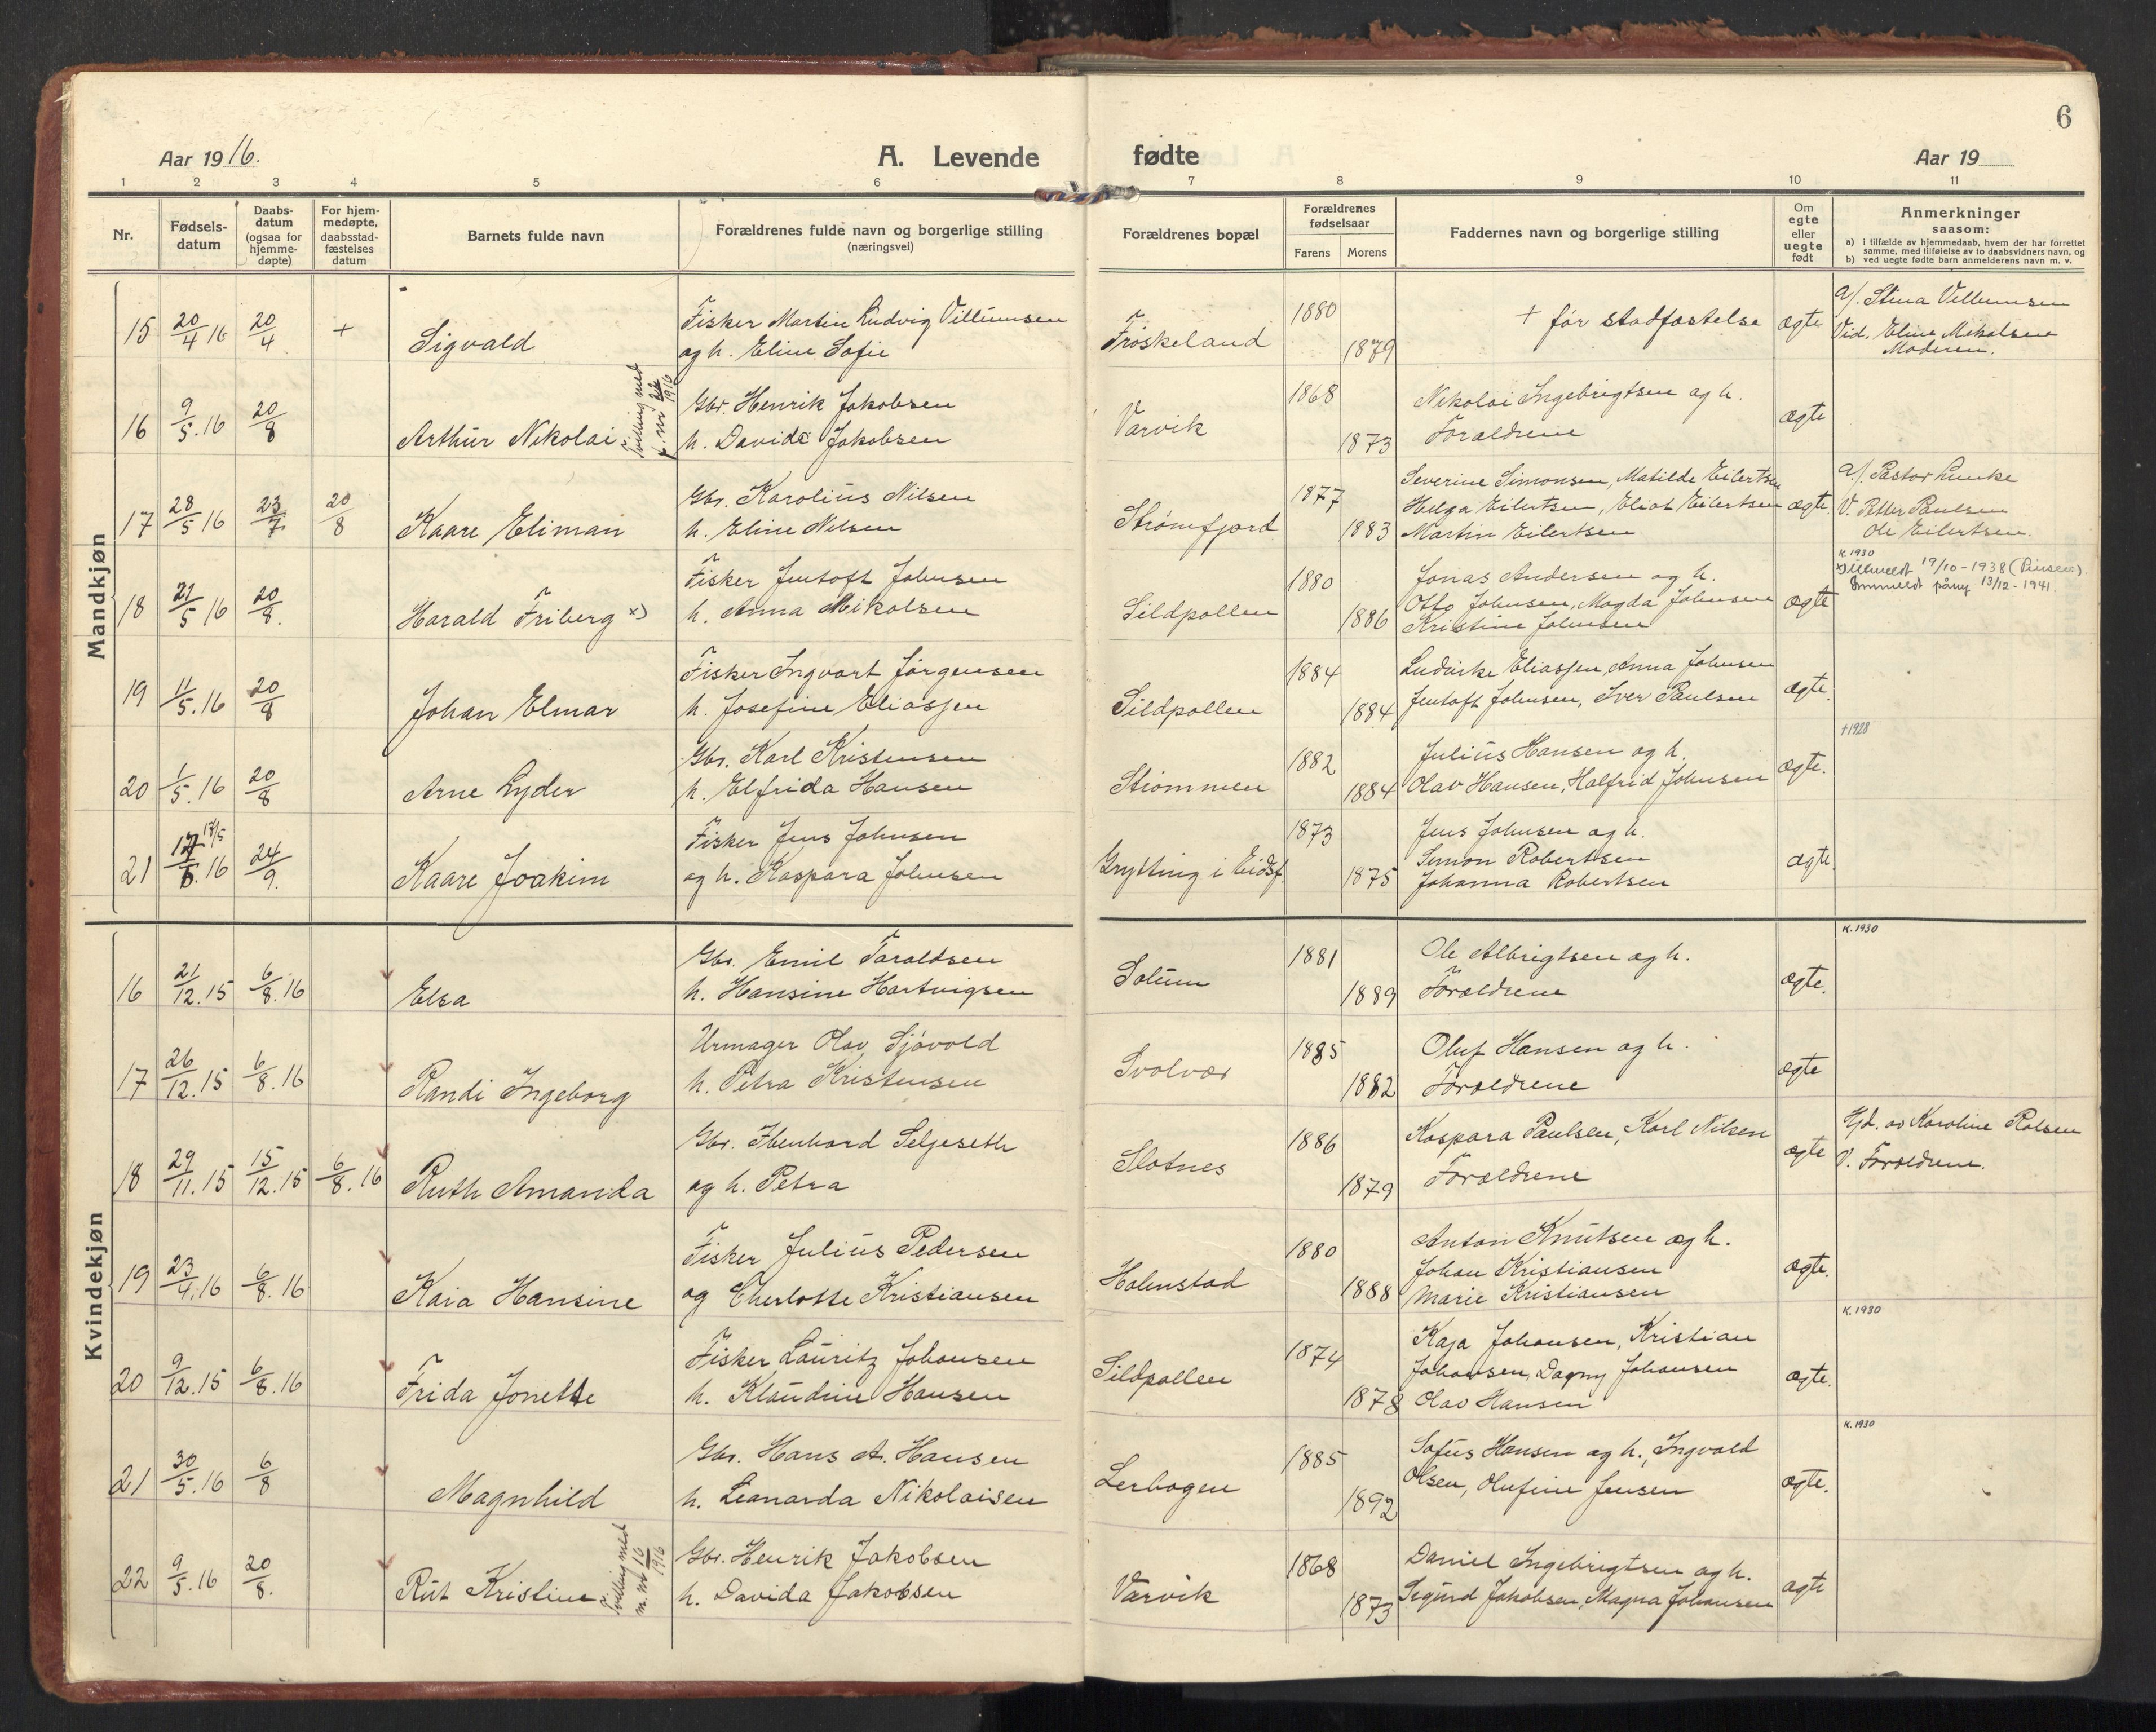 6
Aar 1916.
A. Levende fødte
Aar 19
1 2 3 4 5 6 7 8 9 10 11
Nr.
Fødsels-
datum
Daabs-
datum
(ogsaa for
hjemme-
døpte)
For hjem-
medøpte,
daabsstad-
fæstelses
datum
Barnets fulde navn
Forældrenes fulde navn og borgerlige stilling
(næringsvei)
Forældrenes bopæl
Forældrenes
fødselsaar
Farens Morens
Faddernes navn og borgerlige stilling
Om
egte
eller
uegte
født
Anmerkninger
saasom:
a) i tilfælde av hjemmedaab, hvem der har forrettet
samme, med tilføielse av to daabsvidners navn, og
b) ved uegte fødte barn anmelderens navn m. v.
Mandkjøn
15 20/4 16 20/4 + Sigvald
Fisker Martin Ludvig Villumsen
og h. Eline Sofie
Frøskeland 1880 1879
+ før stadfæstelse
ægte
a/. Stina Villumsen
Vid. Eline Mikalsen
Moderen.
16 9/5.16 20/8 Arthur Nikolai
Tvilling med
f. nr 22
1916
Gbr. Henrik Jakobsen
h. Davida Jakobsen
Varvik 1868 1873
Nikolai Ingebrigtsen og h.
Forældrene
ægte
17 28/5 16 23/7 20/8 Kaare Eliman
Gbr. Karolius Nilsen
h. Eline Nilsen
Strømfjord 1877 1883
Severine Simonsen, Matilde Eilertsen
Helga Eilertsen, Eliot Eilertsen
Martin Eilertsen
ægte.
a/. Pastor
V. Petter Paulsen
Ole Eilertsen.
18 21/5 16 20/8. Harald Friberg x)
Fisker Jentoft Johnsen
h. Anna Mikolsen
Sildpollen 1880 1886
Jonas Andersen og h.
Otto Johnsen, Magda Johnsen
Kristine Johnsen
ægte
K. 1930
x) Utmeldt 19/10-1938
Innmeldt påny 13/12-1941.
19 11/5.16 20/8 Johan Elmar
Fisker Ingvart Jørgensen
h. Josefine Eliassen
Sildpollen 1884 1884
Ludvike Eliassen, Anna Johnsen
Jentoft Johnsen, Iver Paulsen
ægte.
20 1/5.16 20/8 Arne Lyder
Gbr. Karl Kristensen
h. Elfrida Hansen
Strømmen 1882 1884
Julius Hansen og h.
Olav Hansen, Halfrid Johnsen
ægte.
+1928
21 17/5 16 24/9. Kaare Joakim
17/5
Fisker Jens Johnsen
og h. Kaspara Johnsen
Grytting i Eidsf. 1873 1875
Jens Johnsen og h.
Simon Robertsen
Johanna Robertsen
ægte.
Kvindekjøn
16 21/12.15 6/8.16 Elsa
Gbr. Emil Taraldsen
h. Hansine Hartvigsen
Solum 1881 1889
Ole Albrigtsen og h.
Forældrene
ægte.
K. 1930
17 26/12.15 6/8.16 Randi Ingeborg
Urmager Olav Sjøvold
h. Petra Kristensen
Svolvær 1885 1882
Oluf Hansen og h.
Forældrene
ægte
18 29/11.15 15/12.15 6/8.16 Ruth Amanda
Gbr. Ibenhard Seljeseth
og h. Petra
Slotnes 1886 1879
Kaspara Paulsen, Karl Nilsen
Forældrene
ægte
Hjd. av Karoline Rolsen
V. Forældrene.
19 23/4.16 6/8.16 Kaia Hansine
Fisker Julius Pedersen
og Cherlotte Kristiansen
Holmstad 1880 1888
Anton Knutsen og h.
Johan Kristiansen
Marie Kristiansen
ægte.
20 9/12.15 6/8.16 Frida Jonette
Fisker Lauritz Johansen
h. Klaudine Hansen
Sildpollen 1874 1878
Kaja Johansen, Kristian
Johansen, Dagny Johansen
Olav Hansen
ægte.
K. 1930
21 30/5.16 6/8 Magnhild
Gbr. Hans A. Hansen
h. Leonarda Nikolaisen
Lerbogen 1885 1892
Sofus Hansen og h., Ingvald
Olsen, Olufine Jensen
ægte.
K. 1930
22 9/5.16 20/8. Rut Kristine
Tvilling med
m. nr 16
1916
Gbr. Henrik Jakobsen
h. Davida Jakobsen
Varvik 1868 1873
Daniel Ingebrigtsen og h.
Sigurd Jakobsen, Magna Johansen
ægte